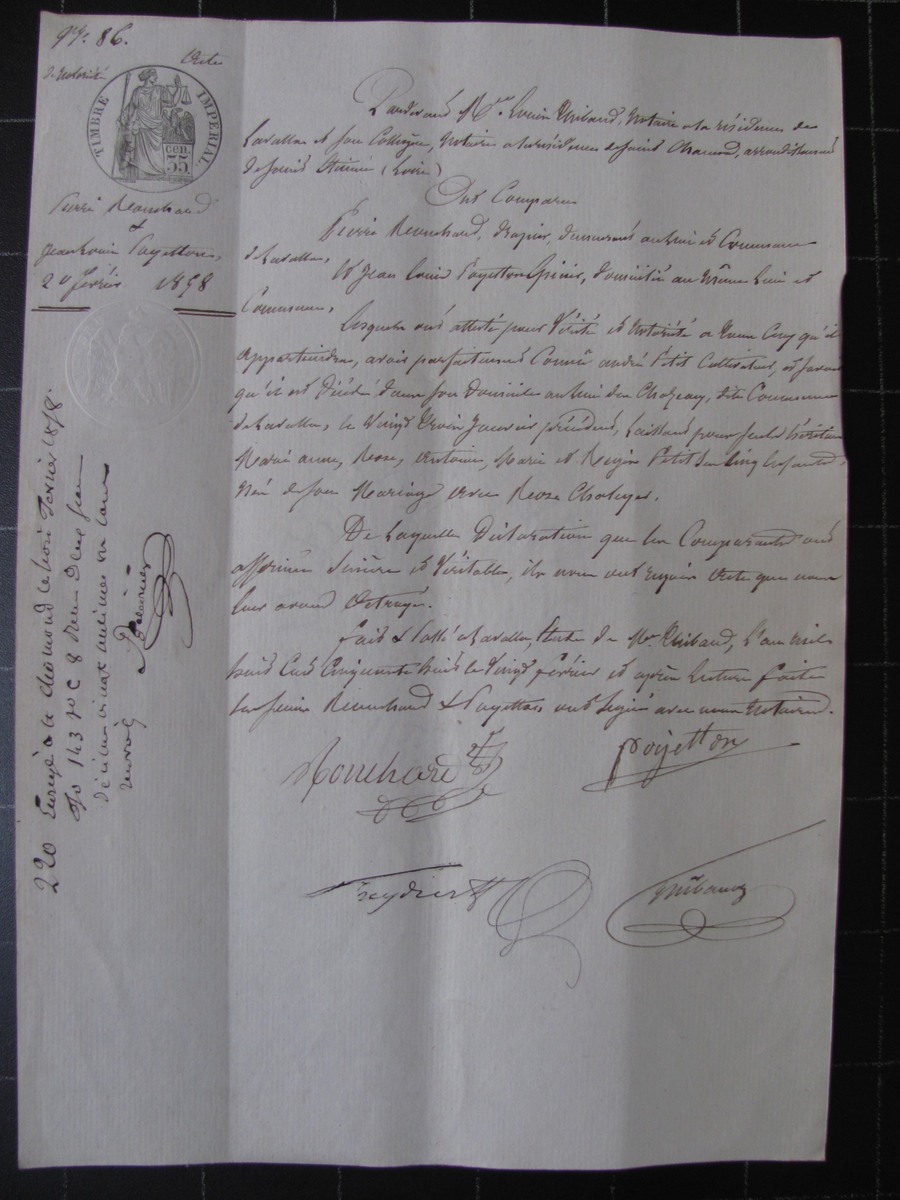 86.
Acte
de Notoriété
TIMBRE IMPERIAL.
35 cen.
Pierre Rouchard
&
Jean Louis Poyetton,
20 février 1858
Pardevant Me Louis Thibaud, Notaire à la résidence de
Lavalla et son Collègue, Notaire à la résidence de Saint Chamond, arrondissement
de Saint Etienne (Loire)
Ont Comparu
Pierre Rouchard, demeurant au lieu et Commune
de Lavalla,
Et Jean Louis Poyetton domicilié au même lieu et
Commune,
Lesquels ont attesté pour Vérité et Notoriété à tous Ceux qu'il
appartiendra, avoir parfaitement Connu andré Petit Cultivateur, et savoir
qu'il est Décédé dans son Domicile au lieu du dite Commune
de Lavalla, le Vingt trois Janvier précédent, laissant pour seuls héritiers
Marie anne, Rose, antoine, Marie et Régis Petit Ses Cinq Enfants,
Nés de son Mariage avec Rose
De Laquelle Déclaration que les Comparants ont
affirmée Sincère et Véritable, ils nous ont requis Acte que nous
leur avons Octroyé.
fait & Passé à Lavalla, Etude de Me Thibaud, L'an mil
huit Cent Cinquante huit le Vingt février et après lecture faite
les sieurs Rouchard & Poyetton ont Signé avec nous Notaires.
Rouchard
Poyetton
Freydier
Thibaud
220 Enregé à St chamond le trois février 1858
fo 143 Ro C 8 Reçu Deux francs
décime vingt centimes